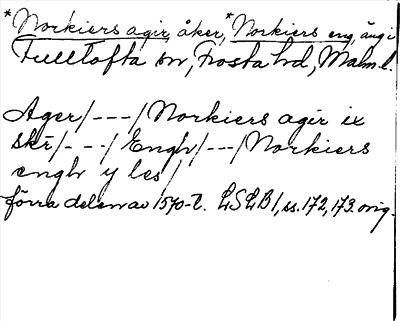 *Norkiers agir, åker, *Norkiers eng, äng i
Fulltofta sn, Frosta hd, Malm. l.
Ager/---/Norkiers agir ix
skr/---/Engh/---/Norkiers
engh y les/
förra delen av 1570-t. LSLB I, ss. 172, 173. orig.